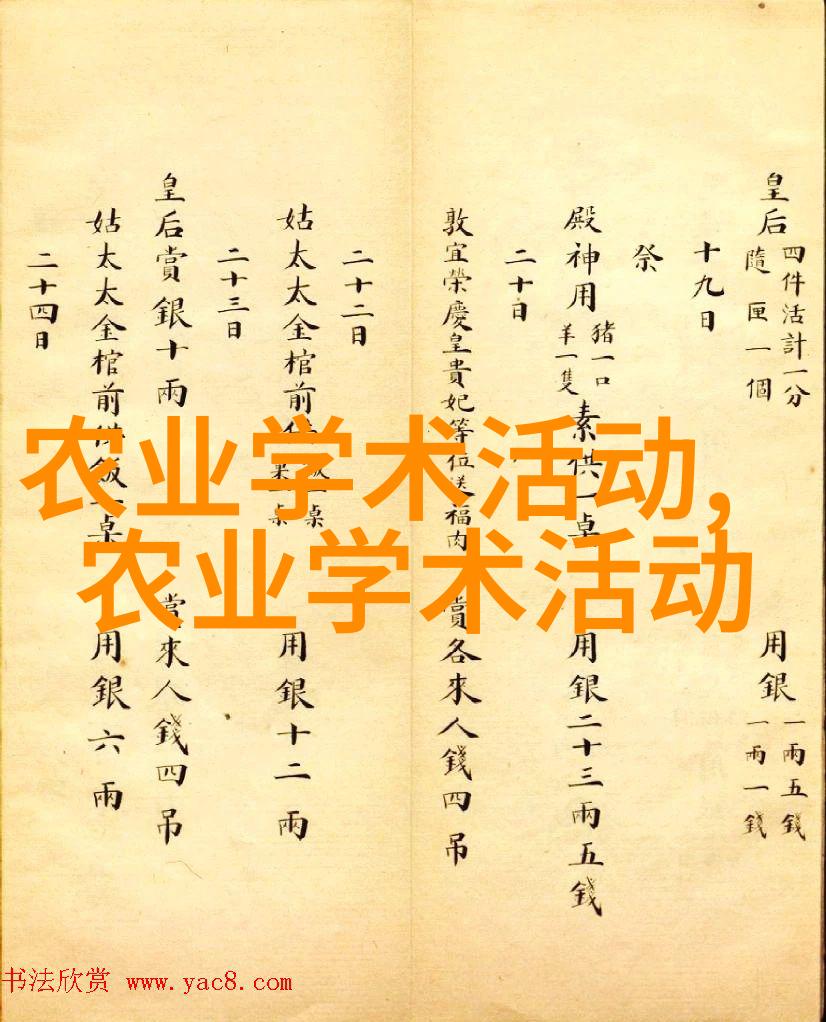 皇后 四件活計一分 隨匣一個 用銀 一兩五錢 一兩一錢
十九日
祭
殿神用 豬一口 羊一隻 素供一桌 用銀二十三兩五錢
二十日
敦宜榮慶皇貴妃等位送福肉 賞各來人錢四吊
二十二日
姑太太金棺前供飯一桌 果一桌 用銀十二兩
二十三日
皇后賞銀十兩 賞來人錢四吊
姑太太金棺前供飯一桌 用銀六兩
二十四日
农业学术活动,
农业学术活动
书法欣赏 www.yac8.com